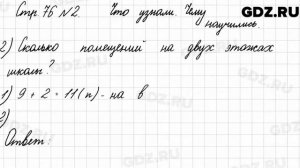 GDZ.RU
Стр. 76 N 2.   Что узнали. Чему
научились.
2) Сколько помещений на двух этажах
школы?
1) 9 + 2 = 11 (п) - на в
2)
Ответ:
GDZ.RU
GDZ.RU